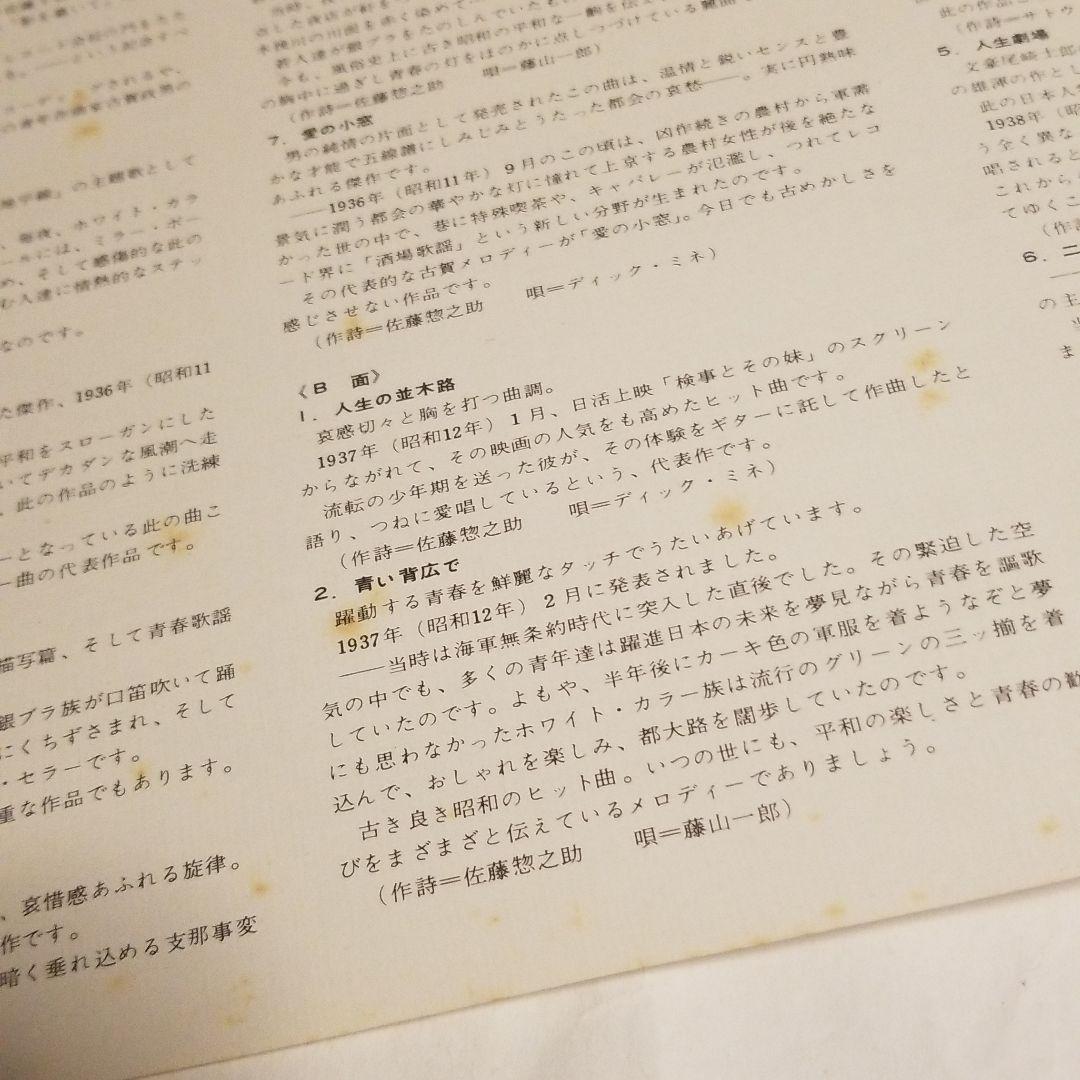 ・セラーです。
重な作品でもあります。
、哀惜感あふれる旋律。
作です。
暗く垂れ込める支那事変
銀ブラ族が口笛吹いて踊
にくちずさまれ、そして
描写篇、そして青春歌謡
ーとなっている此の曲こ
一曲の代表作品です。
平和をスローガンにした
いてデカダンな風潮へ走
、此の作品のように洗練
た傑作、1936年（昭和11
なのです。
の胸中に過ぎし青春の灯をほのかに点しつづけている
（作詩＝佐藤惣之助　　唄＝藤山一郎）
7．愛の小窓
男の純情の片面として発売されたこの曲は、温情と鋭いセンスと豊
かな才能で五線譜にしみじみとうたった都会の哀愁――。実に円熟味
あふれる傑作です。
――1936年（昭和11年）9月のこの頃は、凶作続きの農村から軍需
景気に潤う都会の華やかな灯に憧れて上京する農村女性が後を絶たな
かった世の中で、巷に特殊喫茶や、キャバレーが氾濫し、つれてレコ
ード界に「酒場歌謡」という新しい分野が生まれたのです。
その代表的な古賀メロディーが「愛の小窓」。今日でも古めかしさを
感じさせない作品です。
（作詩＝佐藤惣之助　　唄＝ディック・ミネ）
《B　面》
1．人生の並木路
哀感切々と胸を打つ曲調。
1937年（昭和12年）1月、日活上映「検事とその妹」のスクリーン
からながれて、その映画の人気をも高めたヒット曲です。
流転の少年期を送った彼が、その体験をギターに託して作曲したと
語り、つねに愛唱しているという、代表作です。
（作詩＝佐藤惣之助　　唄＝ディック・ミネ）
2．青い背広で
躍動する青春を鮮麗なタッチでうたいあげています。
1937年（昭和12年）2月に発表されました。
――当時は海軍無条約時代に突入した直後でした。その緊迫した空
気の中でも、多くの青年達は躍進日本の未来を夢見ながら青春を謳歌
していたのです。よもや、半年後にカーキ色の軍服を着ようなぞと夢
にも思わなかったホワイト・カラー族は流行のグリーンの三ッ揃を着
込んで、おしゃれを楽しみ、都大路を闊歩していたのです。
古き良き昭和のヒット曲。いつの世にも、平和の楽しさと青春の歓
びをまざまざと伝えているメロディーでありましょう。
（作詩＝佐藤惣之助　　唄＝藤山一郎）
（作詩＝サトウ
5．人生劇場
文豪尾崎士郎
の雄渾の作とし
此の日本人
1938年（昭
う全く異な
唱されると
これから
てゆくこ
（作詩
6．二
の主
ま